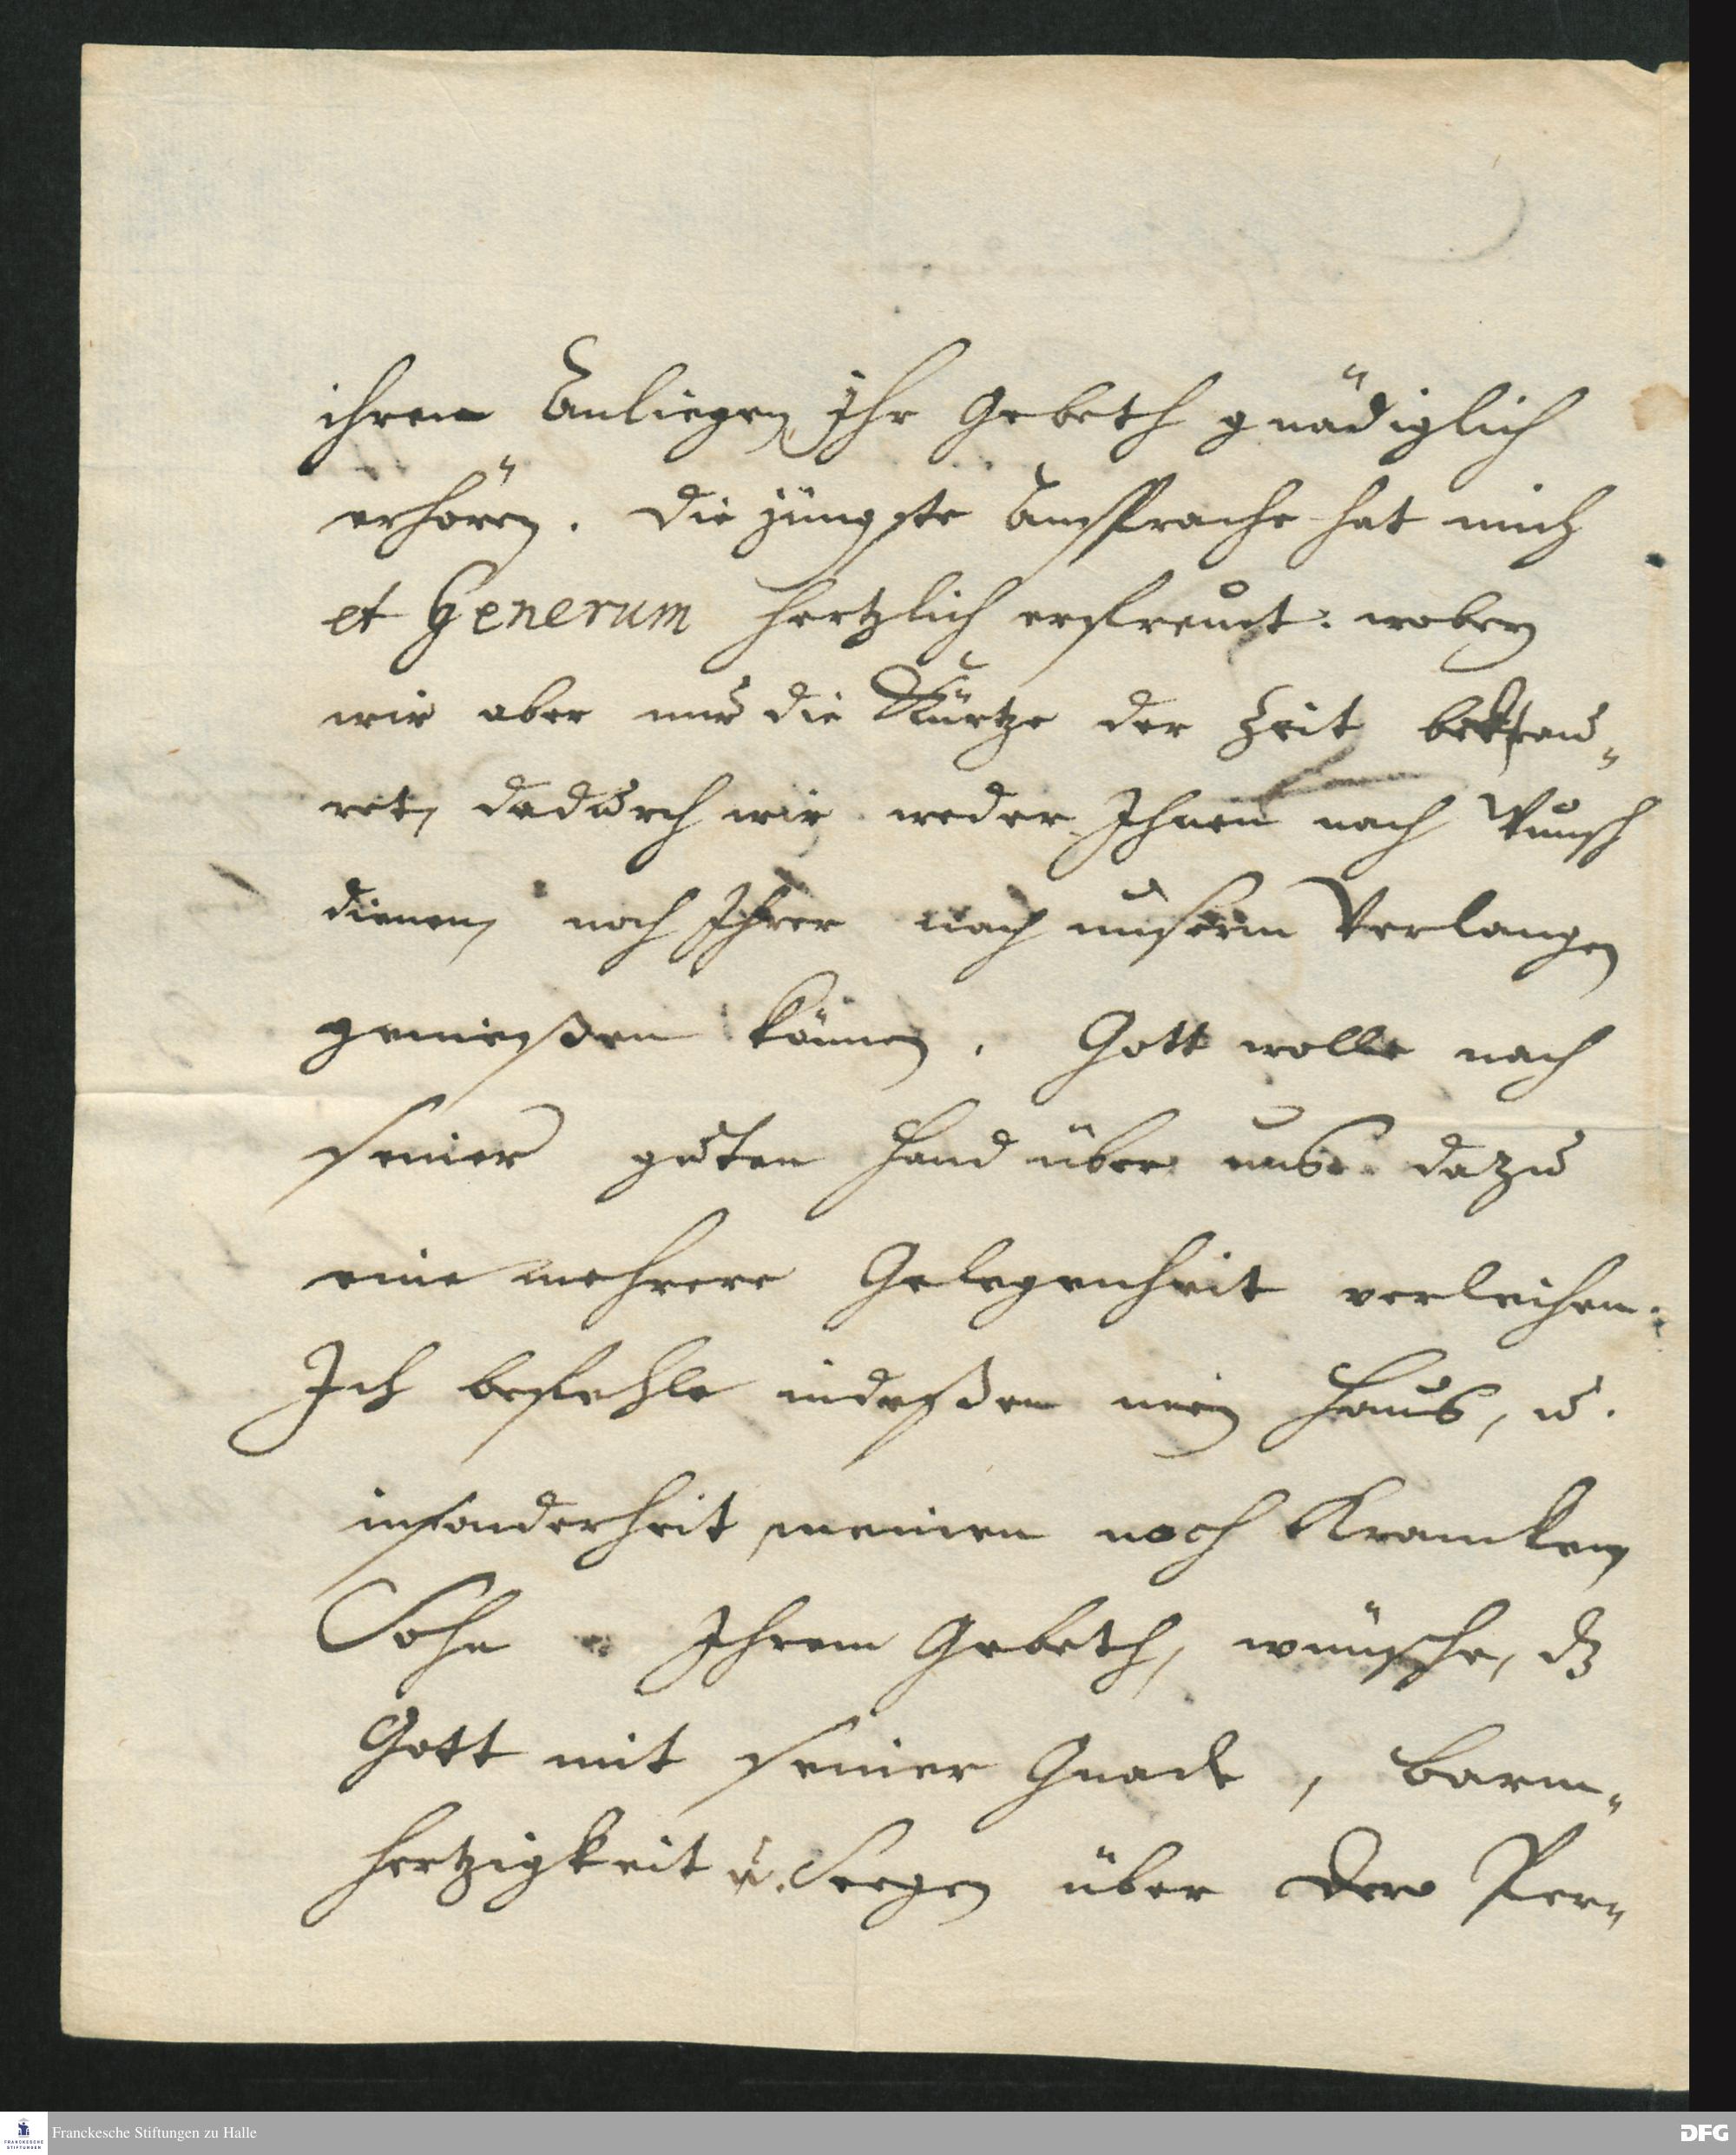 ihren Anliegen Ihr Gebeth gnädiglich
erhören. Die jüngste Ansprache hat mich
et Generum hertzlich erfreuet: wobey
wir aber nur die Kürtze der Zeit betrau„
ret, dadurch wir weder Ihnen nach Wunsch
dienen, noch Ihrer nach unserm Verlangen
genießen können. Gott wolle nach
seiner guten Hand über uns dazu
eine mehrere Gelegenheit verleihen.
Ich befehle indeßen mein Hauß, u.
insonderheit meinen noch Krancken
Sohn Ihrem Gebeth, wünsche, dz
Gott mit seiner Gnade, Barm„
hertzigkeit u. Seegen über Dero Per„
Franckesche Stiftungen zu Halle
DFG